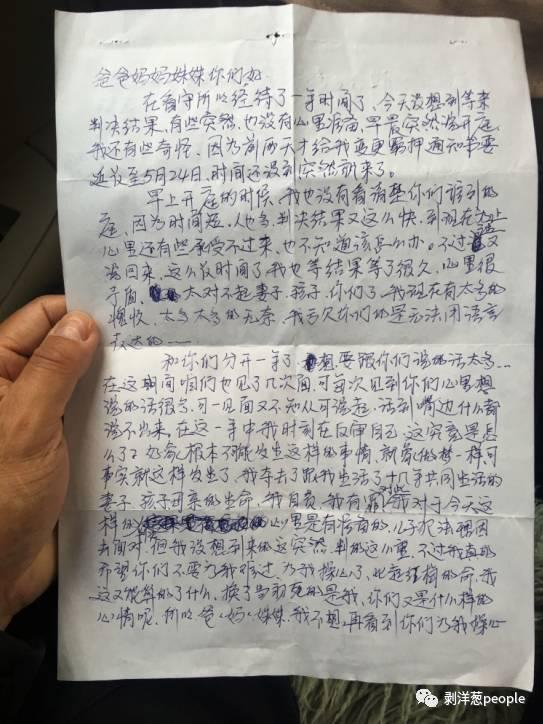 爸爸妈妈妹妹你们好
在看守所已经待了一年时间了，今天没想到等来
判决结果，有些突然，也没有心里准备，早晨突然说开庭
我还有些奇怪，因为前两天才给我变更羁押通知书要
延长至5月24日，时间还没到突然就来了。
早上开庭的时候，我也没有看清楚你们谁到的
庭，因为时间短，人也多，判决结果又这么快，到现在
心里还有些承受不过来，也不知道该怎么办。不过又
说回来，这么长时间了，我也等结果等了很久，心里很
矛盾，太对不起妻子，孩子，你们了，我现在有太多的
悔恨，太多太多的无奈，我亏欠你们的是无法用语言
表达的……
和你们分开一年了，想要跟你们说的话太多…
在这期间咱们也见了几次面，可每次见到你们心里想
说的话很多，可一见面又不知从何说起，话到嘴边什么都
说不出来，在这一年中我时刻在反审自己，这究竟是怎
么了？如今根本不可能发生这样的事情，就像做梦一样可
事实就这样发生了，我夺去了跟我生活了十几年共同生活的
妻子，孩子母亲的生命，我自责，我有罪，我对于今天这
样的心里是有准备的，儿子犯法理因
去面对，但我没想到来的这突然，判的这么重，不过我真的
希望你们不要为我难过，为我操心了，比起结树的命，我
这又能算的了什么，换了当初死的是我，你们又是什么样的
心情呢，所以爸，妈，妹妹，我不想再看到你们为我操心
剥洋葱people